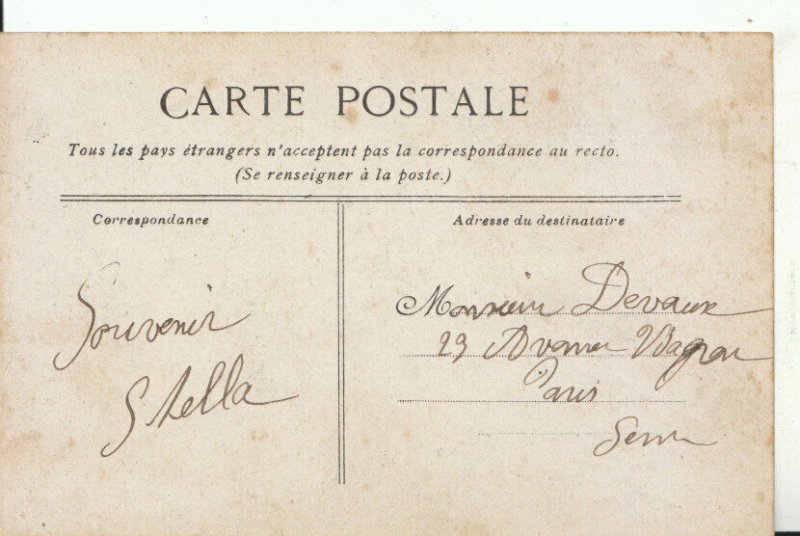 CARTE POSTALE
Tous les pays étrangers n'acceptent pas la correspondance au recto.
(Se renseigner à la poste.)
Correspondance
Adresse du destinataire
Souvenir
Stella
Monsieur Devaux
Avenue Wagram
Paris
Seine